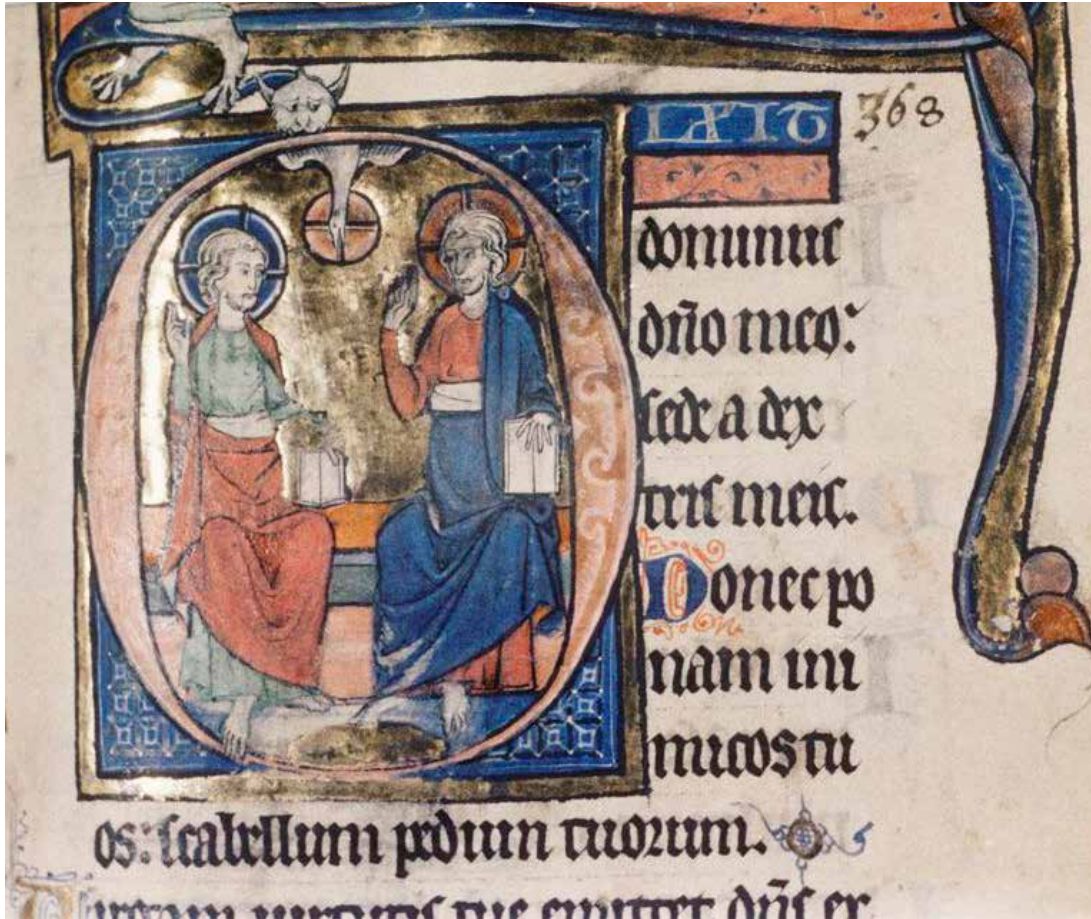 DIXIT 368
dominus
dño meo:
sede a dex
tris meis.
Donec po
nam ini
micos tu
os: scabellum pedum tuorum.
Uirgam uirtutis tue emittet dñs ex